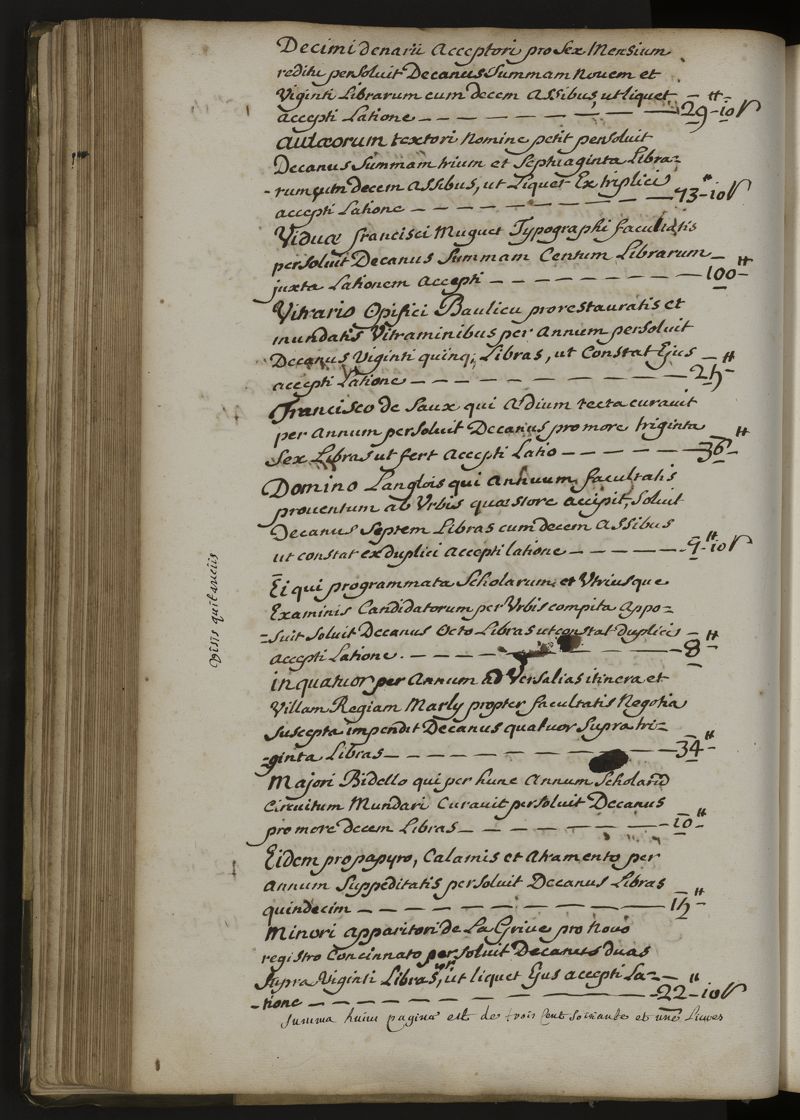 Decimi denarii Acceptori pro Sex Mensium
reditu persoluit Decanus Summam Nouem et
Viginti Librarum cum decem Assibus, ut liquet
accepti Latione — 29 ₶ - 10 ſ
aulæorum textori Nomine petit persoluit
Decanus Summam trium et Septuaginta Libra-
-rum cum decem Assibus, ut Liquet Ex triplici
accepti Latione — 73 ₶ - 10 ſ
Viduæ francisci Muguet Typographi facultatis
persoluit Decanus Summam Centum Librarum
juxta Lationem accepti — 100 ₶
Vitrario Opifici Baulieu pro restauratis et
mundatis Vitraminibus per Annum persoluit
Decanus Viginti quinq; Libras, ut Constat Ejus
accepti Latione — 25 ₶
Francisco de Saux qui Ædium tecta curauit
per Annum persoluit Decanus pro more triginta
Sex Libras ut fert Accepti Latio — 36 ₶
Domino Langlois qui Annuum facultatis
prouentum ab Vrbis quæstore accipit, Soluit
Decanus Septem Libras cum decem Assibus
ut constat ex duplici accepti latione — 9 ₶ - 10 ſ
Ei qui programmata Scholarum et Vtriusque
Examinis Candidatorum per Vrbis compita Appo-
-suit Soluit Decanus Octo Libras ut constat duplici
Accepti Latione. — 8 ₶
in quatuor per Annum ad Versalias itinera et
Villam Regiam Marly propter facultatis Negotia
Suscepta impendit Decanus quatuor Supra tri-
-ginta Libras — 34 ₶
Majori Bidello qui per hunc Annum Scholarũ
Circuitum Mundari Curauit persoluit Decanus
pro more decem Libras — 10 ₶
Eidem pro papyro, Calamis et Atramento per
Annum Suppeditatis persoluit Decanus Libras
quindecim — 15 ₶
Minori apparitori de La Griue pro Nouo
registro Concinnato persoluit Decanus duas
Supra Viginti Libras, ut liquet Ejus accepti La-
-tione — 22 - 10 ſ
Summa huius paginæ est de trois Cent Soixante et une Liures
Visis quitanciis